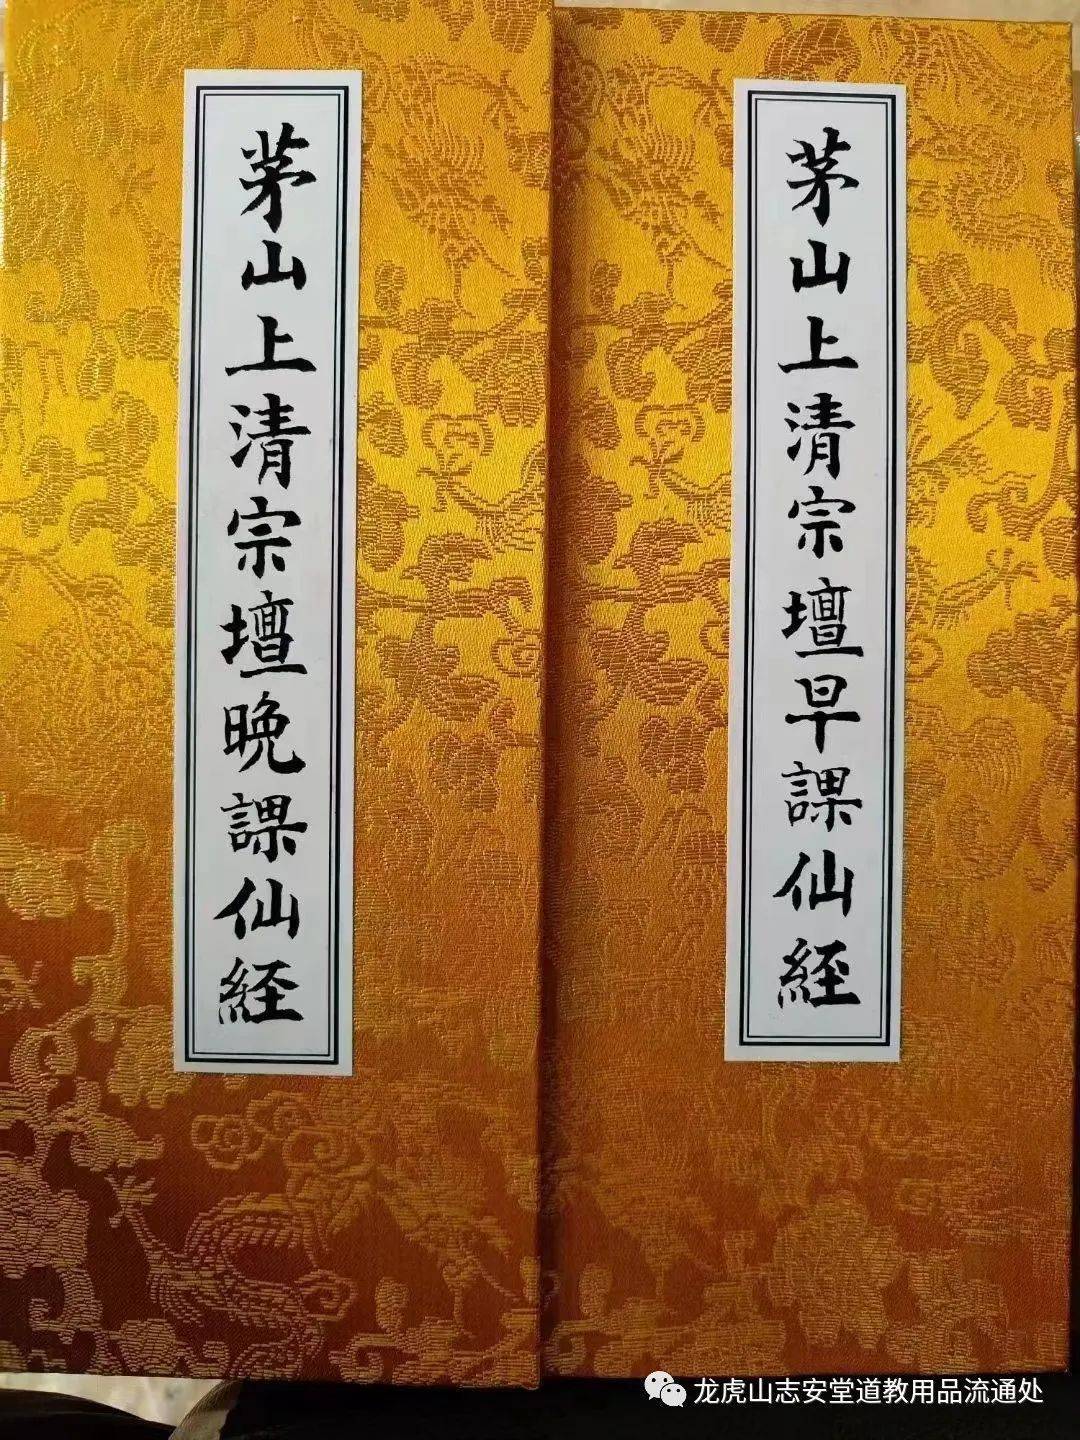 茅山上清宗壇早課仙経
茅山上清宗壇晚課仙経
龙虎山志安堂道教用品流通处